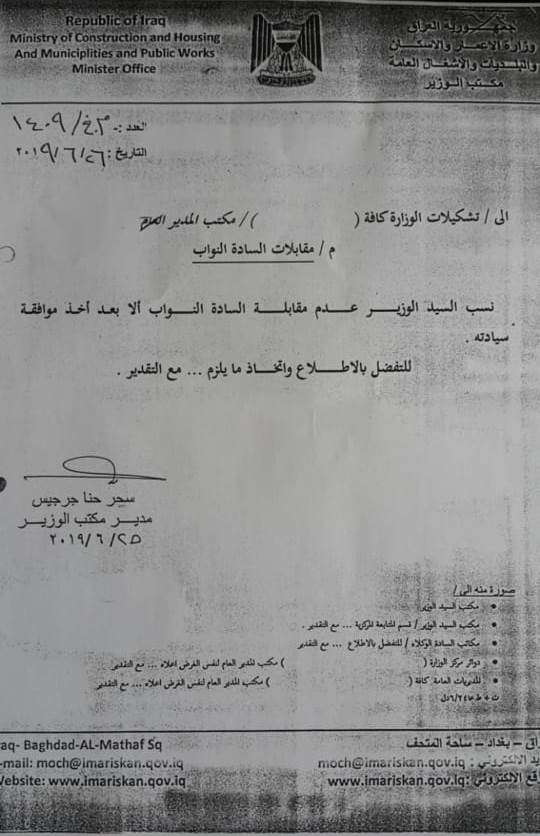 Republic of Iraq
Ministry of Construction and Housing
And Municiplities and Public Works
Minister Office
جمهورية العراق
وزارة الاعمار والاسكان
والبلديات والأشغال العامة
مكتب الوزير
العدد :- م.خ/ ١٤٠٩
التاريخ : ٢٠١٩/٦/٢٦
الى / تشكيلات الوزارة كافة ( ) / مكتب المدير العام
م / مقابلات السادة النواب
نسب السيد الوزير عدم مقابلة السادة النواب ألا بعد أخذ موافقة
سيادته .
للتفضل بالاطلاع واتخاذ ما يلزم ... مع التقدير .
سحر حنا جرجيس
مدير مكتب الوزير
٢٠١٩/٦/٢٥
صورة منه الى /
• مكتب السيد الوزير
• مكتب السيد الوزير / قسم المتابعة المركزية ... مع التقدير .
• مكاتب السادة الوكلاء / للتفضل بالاطلاع ... مع التقدير
• دوائر مركز الوزارة ( ) مكتب المدير العام لنفس الغرض اعلاه ... مع التقدير
• المديريات العامة كافة ( ) مكتب المدير العام لنفس الغرض اعلاه ... مع التقدير
raq- Baghdad-AL-Mathaf Sq
-mail: moch@imariskan.gov.iq
Website: www.imariskan.gov.iq
راق – بغداد – ساحة المتحف
يد الالكتروني : moch@imariskan.gov.iq
قع الالكتروني: www.imariskan.gov.iq